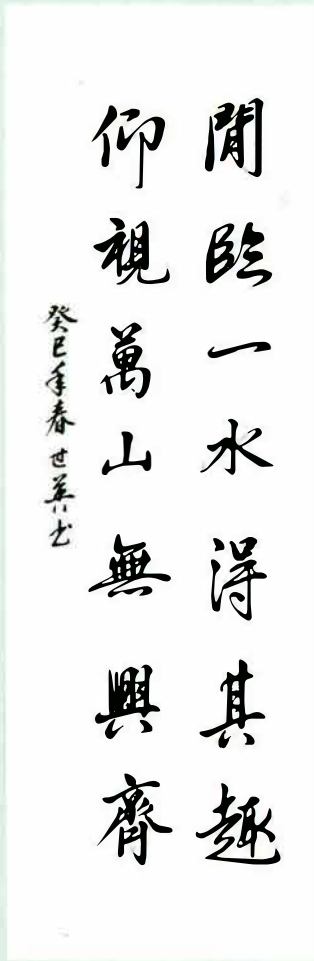 閒臨一水得其趣
仰視萬山無與齊
癸巳年春世英书